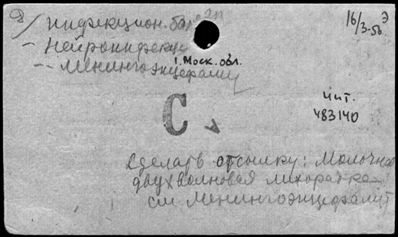 Инфекцион. бол
16/3-56 Э
— Нейроинфекц
г. Моск. обл.
-- Менингоэнцефалит
шт.
483140
С
Сделать отсылку: Молочная
двухволновая лихорадка
см Менингоэнцефалит